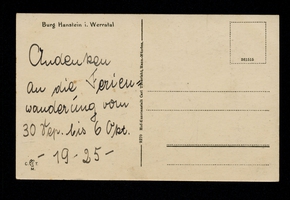 Burg Hanstein i. Werratal
Andenken
an die Ferien=
wanderung vom
30 Sep. bis 6 Okt.
- 19 - 25 -